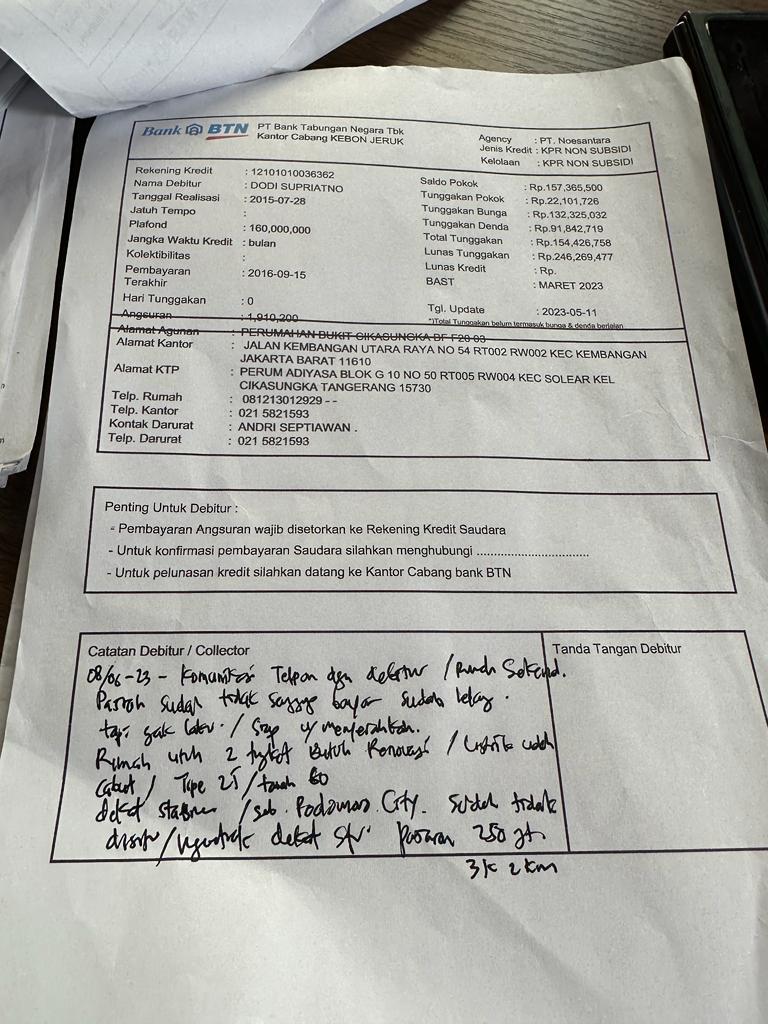 Bank BTN PT Bank Tabungan Negara Tbk
Kantor Cabang KEBON JERUK
Agency : PT. Noesantara
Jenis Kredit : KPR NON SUBSIDI
Kelolaan : KPR NON SUBSIDI
Rekening Kredit : 12101010036362
Nama Debitur : DODI SUPRIATNO
Tanggal Realisasi : 2015-07-28
Jatuh Tempo :
Plafond : 160,000,000
Jangka Waktu Kredit : bulan
Kolektibilitas :
Pembayaran Terakhir : 2016-09-15
Hari Tunggakan : 0
Angsuran : 1,910,200
Saldo Pokok : Rp.157,365,500
Tunggakan Pokok : Rp.22,101,726
Tunggakan Bunga : Rp.132,325,032
Tunggakan Denda : Rp.91,842,719
Total Tunggakan : Rp.154,426,758
Lunas Tunggakan : Rp.246,269,477
Lunas Kredit : Rp.
BAST : MARET 2023
Tgl. Update : 2023-05-11
*)Total Tunggakan belum termasuk bunga & denda berjalan
Alamat Agunan : PERUMAHAN BUKIT CIKASUNGKA BF F20 03
Alamat Kantor : JALAN KEMBANGAN UTARA RAYA NO 54 RT002 RW002 KEC KEMBANGAN
JAKARTA BARAT 11610
Alamat KTP : PERUM ADIYASA BLOK G 10 NO 50 RT005 RW004 KEC SOLEAR KEL
CIKASUNGKA TANGERANG 15730
Telp. Rumah : 081213012929 - -
Telp. Kantor : 021 5821593
Kontak Darurat : ANDRI SEPTIAWAN .
Telp. Darurat : 021 5821593
Penting Untuk Debitur :
- Pembayaran Angsuran wajib disetorkan ke Rekening Kredit Saudara
- Untuk konfirmasi pembayaran Saudara silahkan menghubungi ................................
- Untuk pelunasan kredit silahkan datang ke Kantor Cabang bank BTN
Catatan Debitur / Collector
Tanda Tangan Debitur
08/06-23 - Komunikasi Telpon dgn debitur / Rumah
Pasrah sudah tidak sanggup bayar sudah lelang.
/ Siap u/ menyerahkan.
Rumah utuh 2 tingkat Butuh Renovasi / Listrik udah
Cabut / Tipe 25 / tanah 60
deket stasiun / seb. Podomoro City. sudah tidak
/ deket Pasaran 250 jt.
3K 2 KM